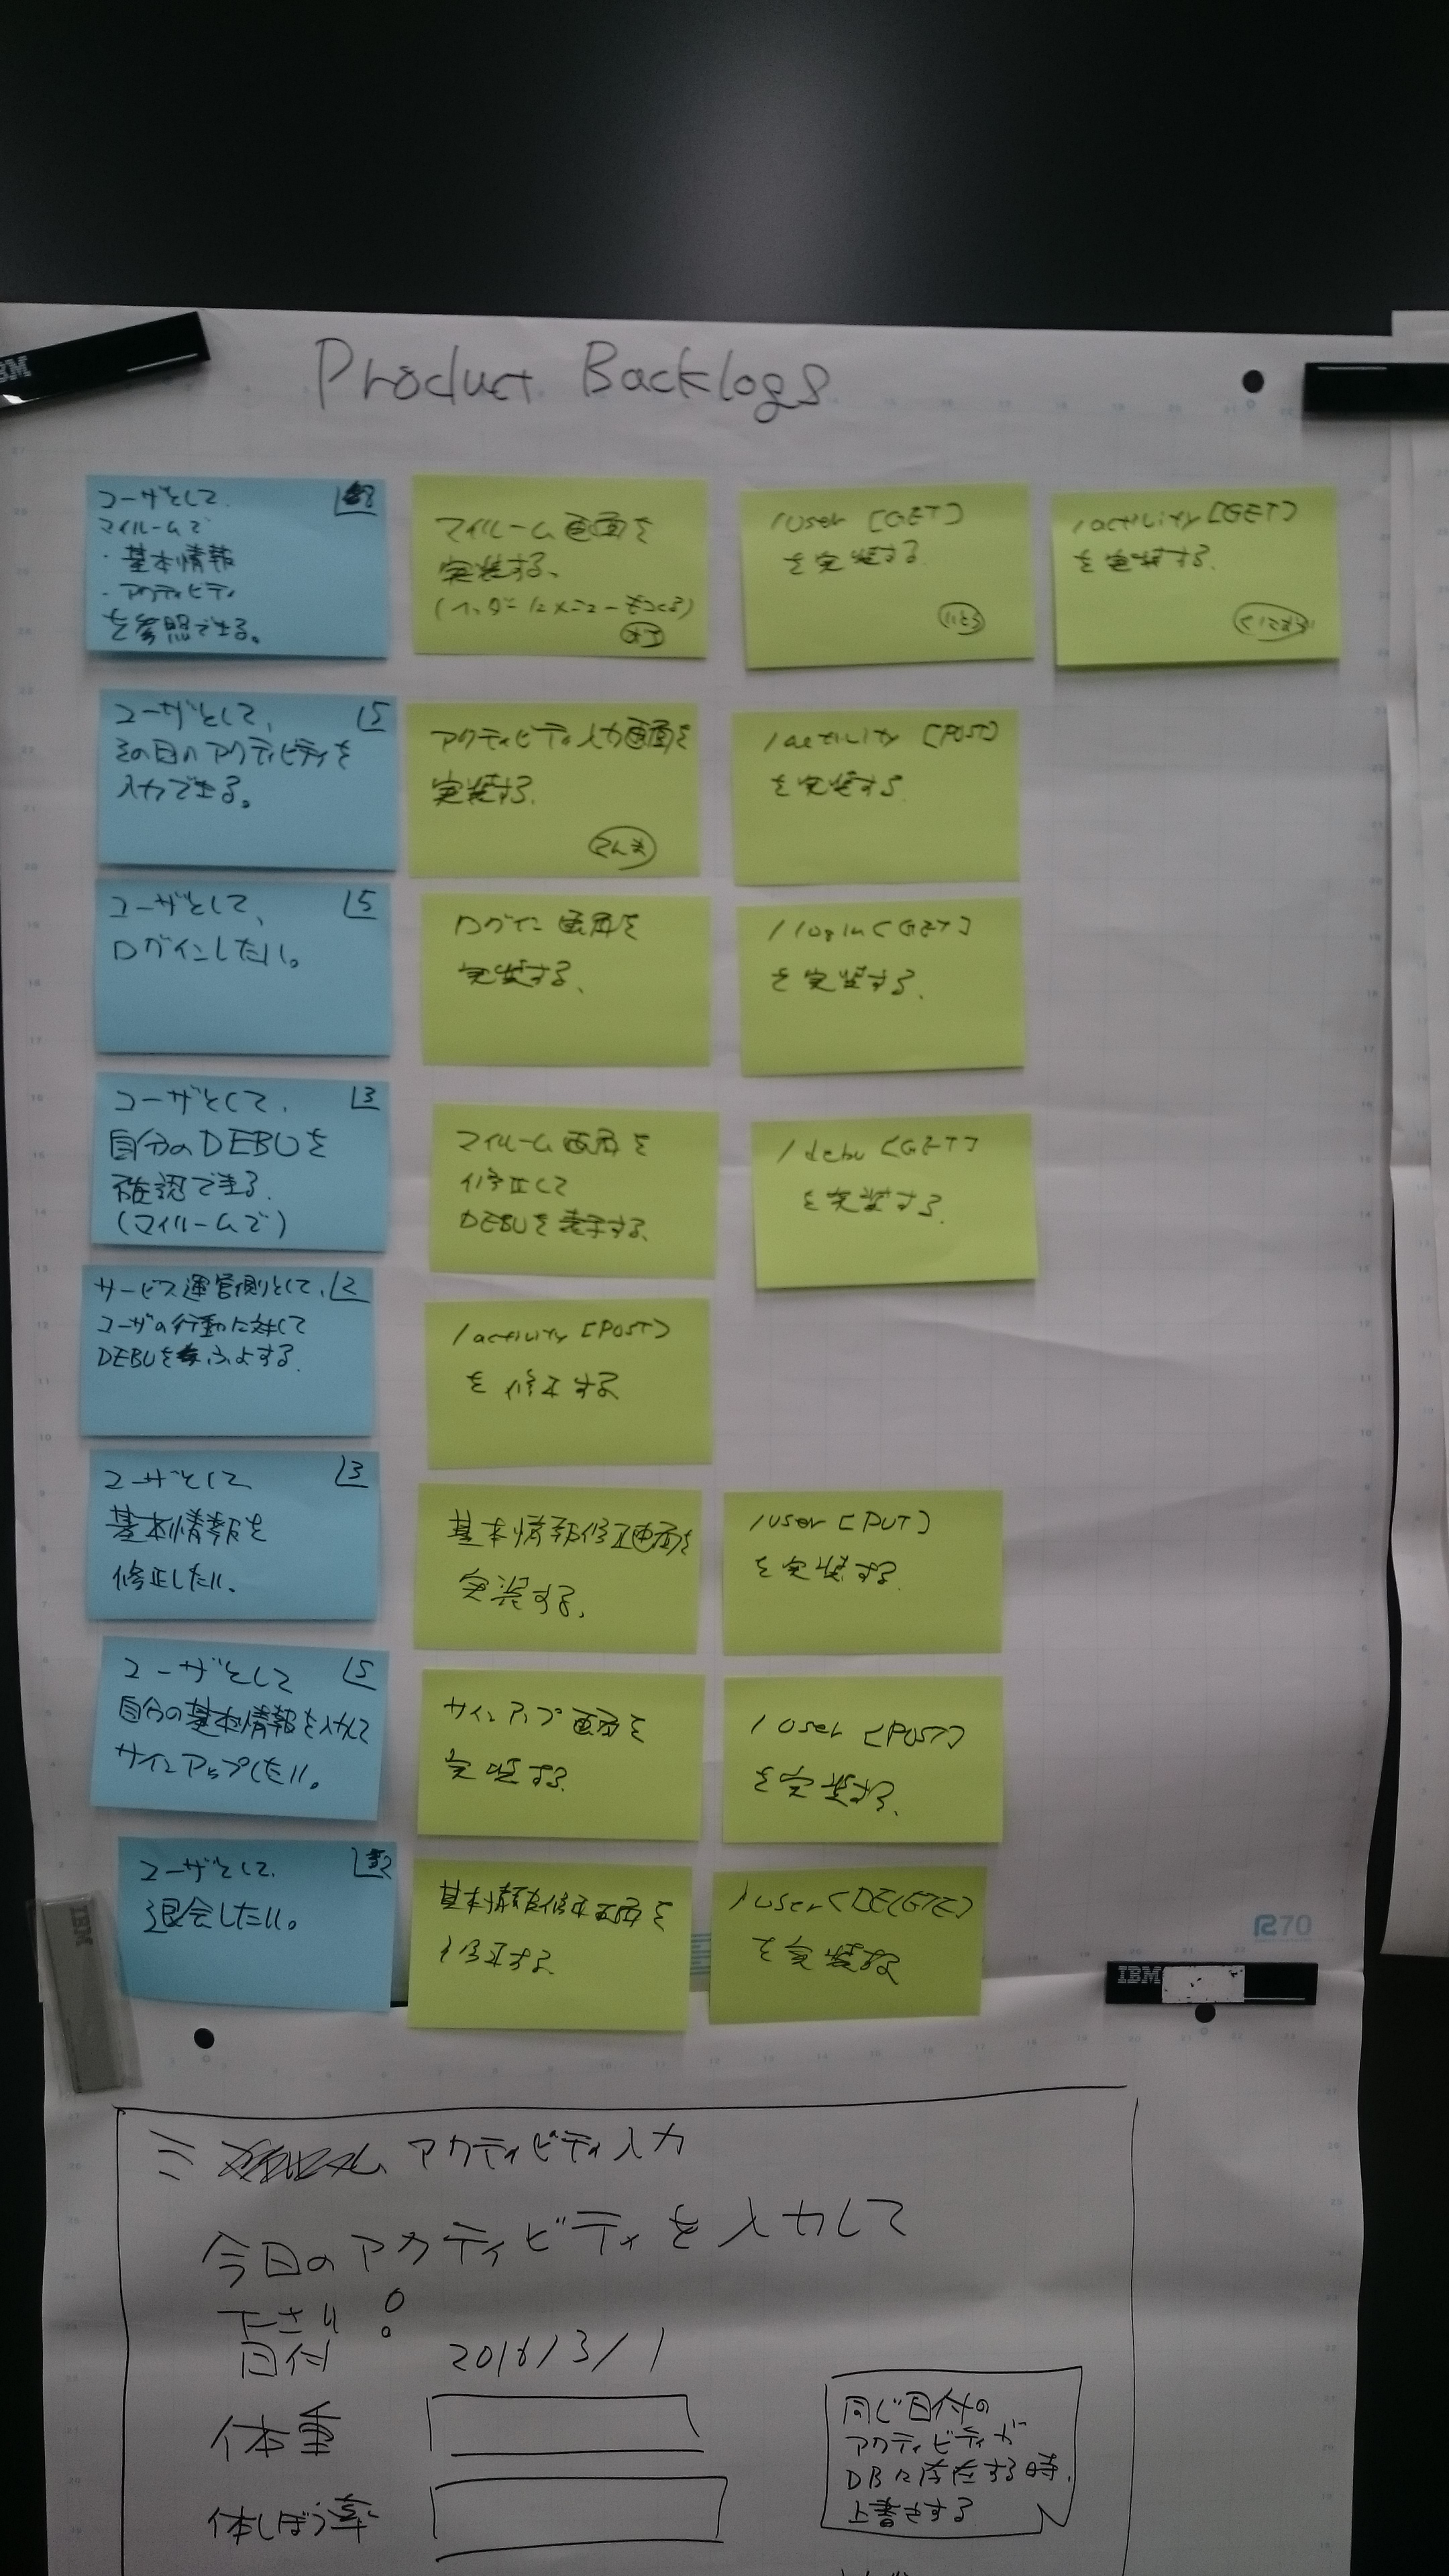 IBM
Product Backlogs
ユーザとして、
マイルームで
・基本情報
・アクティビティ
を参照できる。
8
マイルーム画面を
実装する、
/user [GET]
を実装する
/activity [GET]
を実装する.
ユーザとして、
5
その日のアクティビティを
入力できる。
アクティビティ入力画面を
実装する.
/activity [POST]
を実装する
ユーザとして、
5
ログインしたい。
ログイン画面を
実装する、
/login [GET]
を実装する.
ユーザとして、
3
自分のDEBUを
確認できる.
(マイルームで)
マイルーム画面を
修正して
DEBUを表示する.
/debu [GET]
を実装する.
サービス運営側として、
2
ユーザの行動に対して
DEBUを ふよする.
/activity [POST]
を修正する
ユーザとして
3
基本情報を
修正したい。
基本情報修正画面を
実装する.
/user [PUT]
を実装する.
ユーザとして
5
自分の基本情報を入力して
サインアップしたい。
サインアップ画面を
実装する
/user [POST]
を実装する.
ユーザとして.
2
退会したい。
基本情報修正画面を
修正する
/user [DELETE]
を実装する
IBM
R70
IBM
アクティビティ入力
今日のアクティビティを入力して
下さい!
日付 2016/3/1
体重
体しぼう率
同じ日付の
アクティビティが
DBに存在する時.
上書きする